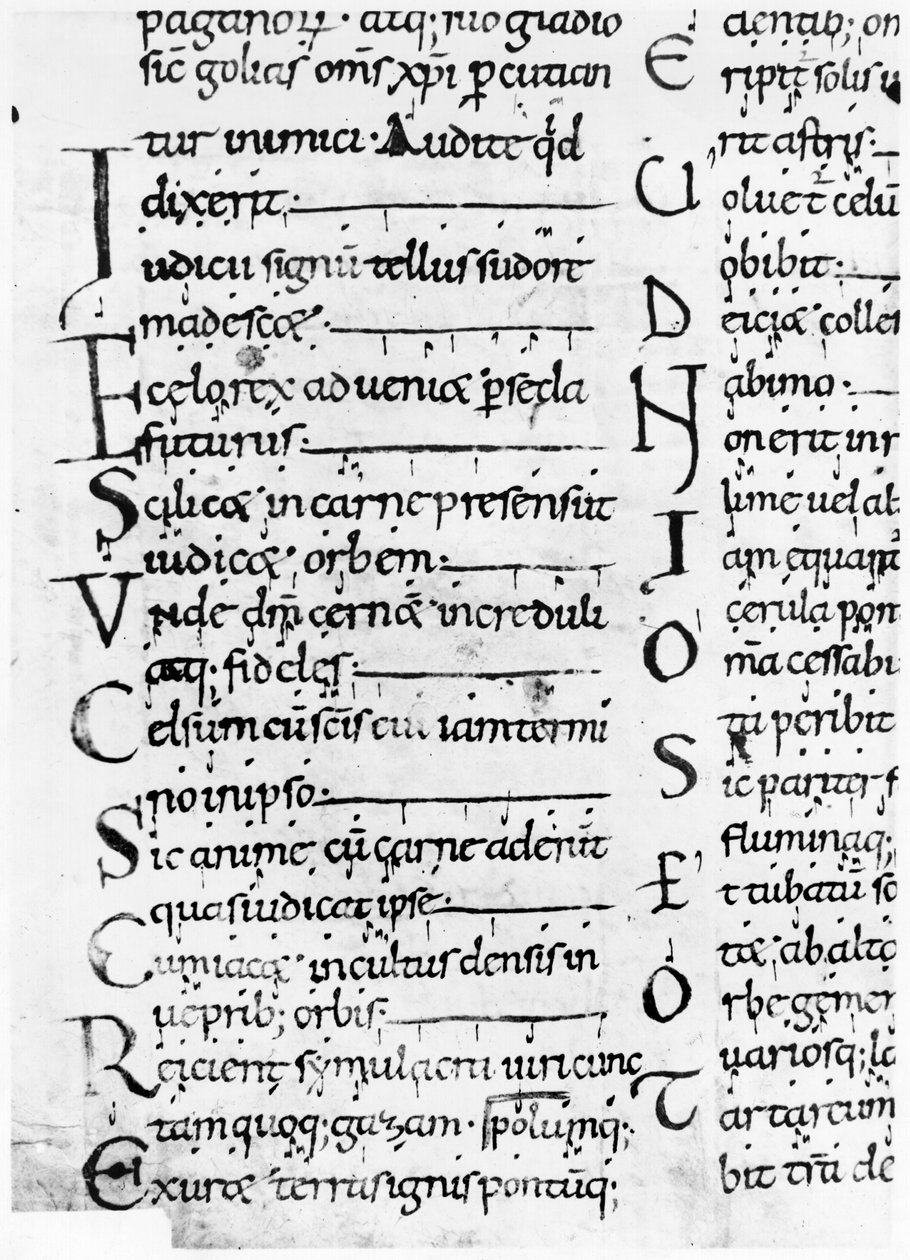 paganoꝝ· atq; suo gladio
sic̄ golias om̄s xp̄i ꝑcutian
tur inimici· Audite qͥd
dixerit·
Iudicii signū tellus sudore
madescæt·
E celo rex adueniæt ꝑ secla
futurus:
Scilicæt in carne presens ut
iudicæt orbem:
Vnde dm̄ cernǣt increduli
atq; fideles:
Celsum cū sc̄is eui iam termi
no in ipso:
Sic anime cū carne aderūt
quas iudicat ipse·
Cum iacæt incultus densis in
ueprib; orbis·
Reicient symulacra uiri cunc
tam quoq; gazam·
Exuræt terras ignis pontūq;
polumq;
Eripit̄ solis iu
rit astris·
Uoluet̄ celū
obibit:
Deiciæt colles
ab imo·
Non erit in r
lime uel al
Iam equant̄
cerula pon
Om̄a cessabu
ta peribit
Sic pariter f
fluminaq;
Et tuba tū so
tæt ab alto
Orbe gemen
uariosq; la
Tartareum
bit tr̄a de